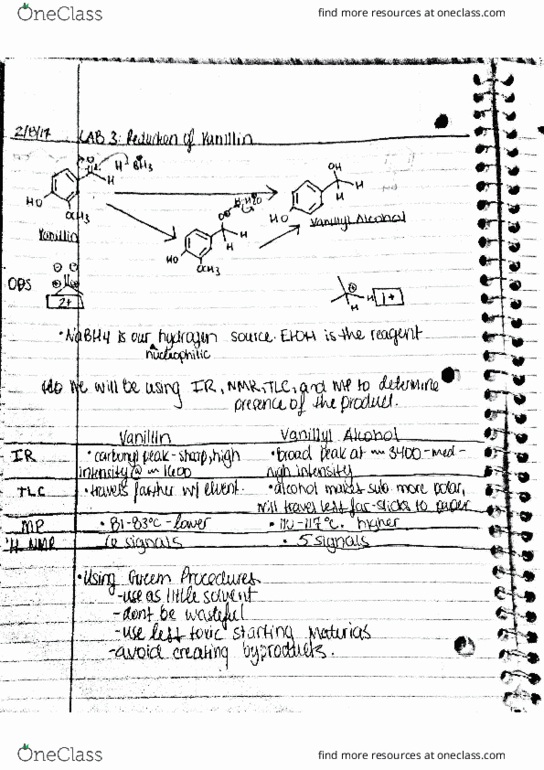 OneClass
find more resources at oneclass.com
2/13/17 LAB 3: Reduction of Vanillin
O
H H BH3
HO OCH3
Vanillin
H2O
HO OCH3
H
H
OH
H
H
HO
Vanillyl Alcohol
ODS
2+
H 1+
• NaBH4 is our hydrogen source. EtOH is the reagent
nucleophilic
We will be using IR, NMR, TLC, and MP to determine
presence of the product.
Vanillin Vanillyl Alcohol
IR • carbonyl peak - sharp, high • broad peak at ~ 3400 - med-
intensity @ ~ 1600 high intensity
TLC • travels farther w/ eluent. • alcohol makes sub more polar,
will travel less far - sticks to paper
MP • 81-83°C - lower • 117°C. higher
'H NMR 6 signals • 5 signals
• Using Green Procedures
- use as little solvent
- dont be wasteful
- use less toxic starting materials
- avoid creating byproducts.
OneClass
find more resources at oneclass.com